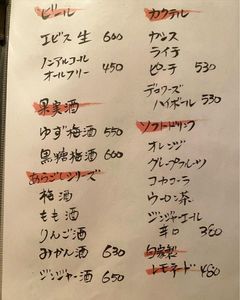 ビール
エビス 生 600
ノンアルコール
オールフリー 450
果実酒
ゆず梅酒 550
黒糖梅酒 600
あらごしシリーズ
梅酒
もも酒
りんご酒
みかん酒 630
ジンジャー酒 650
カクテル
カシス
ライチ
ピーチ 530
ハイボール 530
ソフトドリンク
オレンジ
グレープフルーツ
コカコーラ
ウーロン茶
ジンジャエール
辛口 380
自家製
レモネード 480